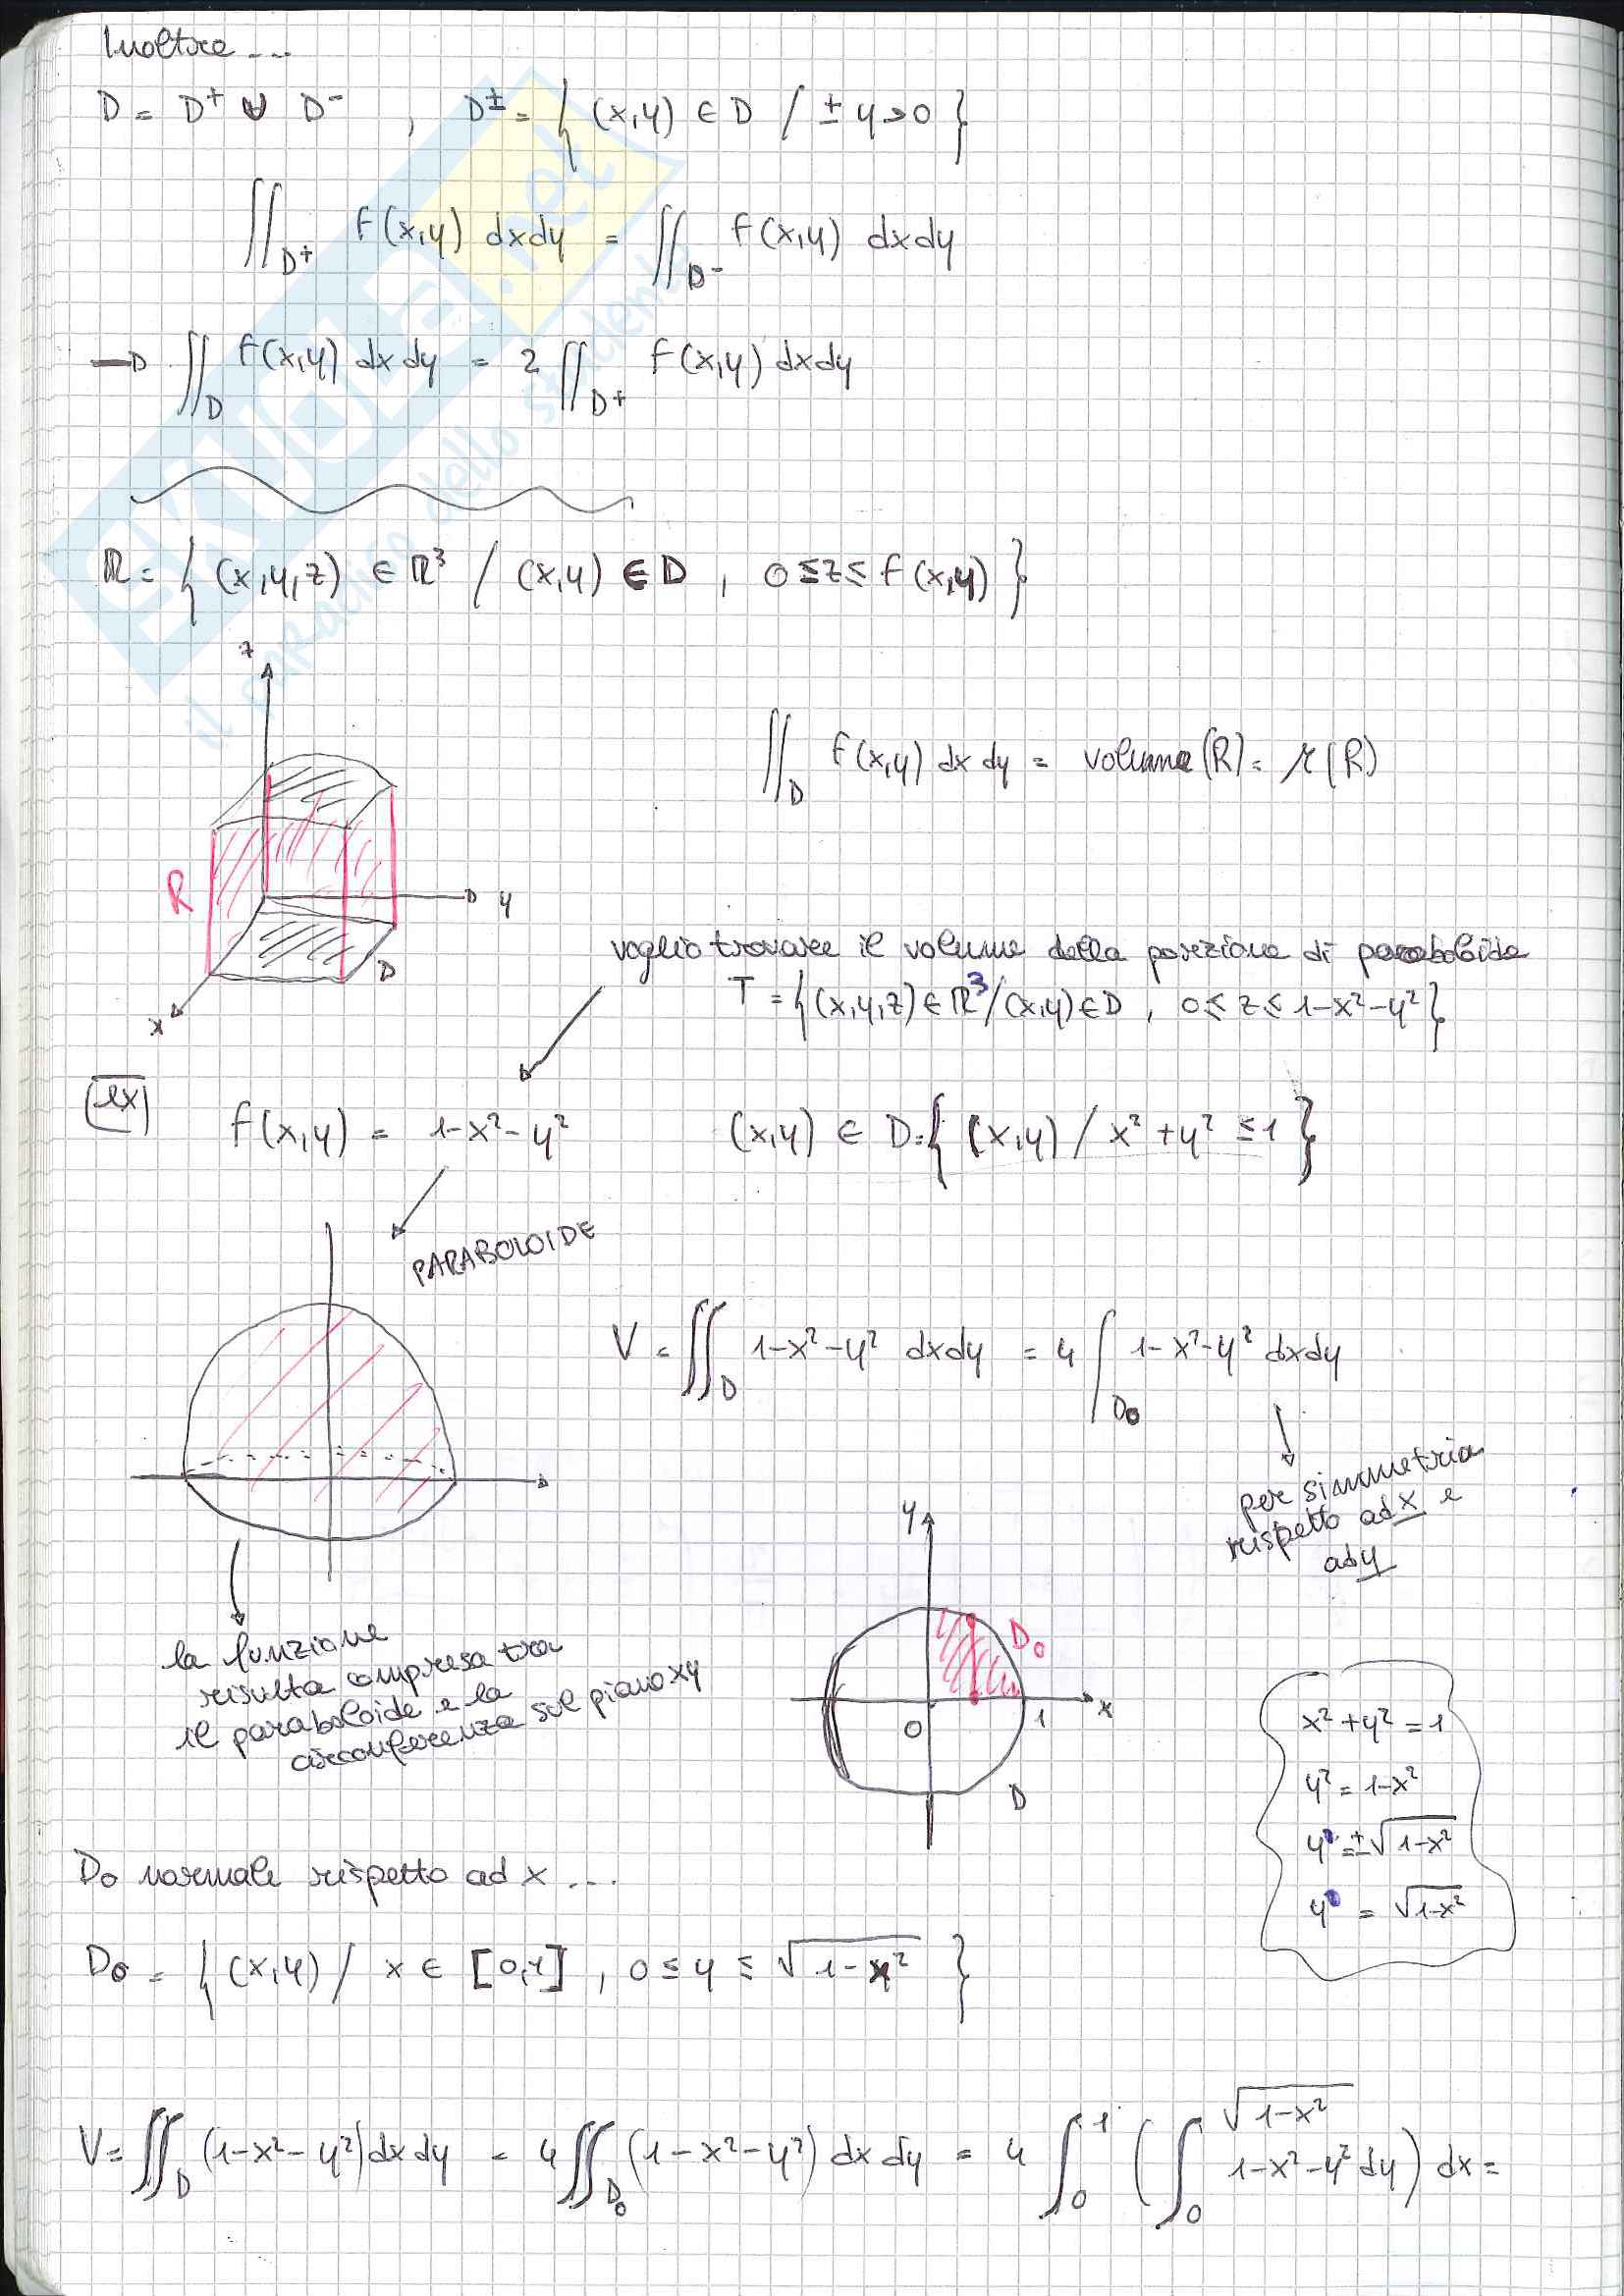 Inoltre ...
D = D⁺ ∪ D⁻ , D^± = { (x,y) ∈ D / ± y > 0 }
∬_{D⁺} f(x,y) dxdy = ∬_{D⁻} f(x,y) dxdy
→ ∬_D f(x,y) dxdy = 2 ∬_{D⁺} f(x,y) dxdy
R = { (x,y,z) ∈ ℝ³ / (x,y) ∈ D , 0 ≤ z ≤ f(x,y) }
z
∬_D f(x,y) dx dy = volume (R) =
R
y
D
x
voglio trovare il volume della porzione di paraboloide
T = { (x,y,z) ∈ ℝ³ / (x,y) ∈ D , 0 ≤ z ≤ 1-x²-y² }
ex
f(x,y) = 1-x²-y² (x,y) ∈ D = { (x,y) / x²+y² ≤ 1 }
PARABOLOIDE
V = ∬_D 1-x²-y² dxdy = 4 ∫_{D₀} 1-x²-y² dxdy
per simmetria
rispetto ad x e
ad y
la funzione
risulta compresa tra
il paraboloide e la
circonferenza sul piano xy
y
D₀
x
0
1
D
x²+y² = 1
y² = 1-x²
y = ±√(1-x²)
y = √(1-x²)
D₀ normale rispetto ad x ...
D₀ = { (x,y) / x ∈ [0,1] , 0 ≤ y ≤ √(1-x²) }
V = ∬_D (1-x²-y²) dxdy = 4 ∬_{D₀} (1-x²-y²) dx dy = 4 ∫₀¹ ( ∫₀^{√(1-x²)} 1-x²-y² dy ) dx =
SKUOLA.net
il paradiso dello studente